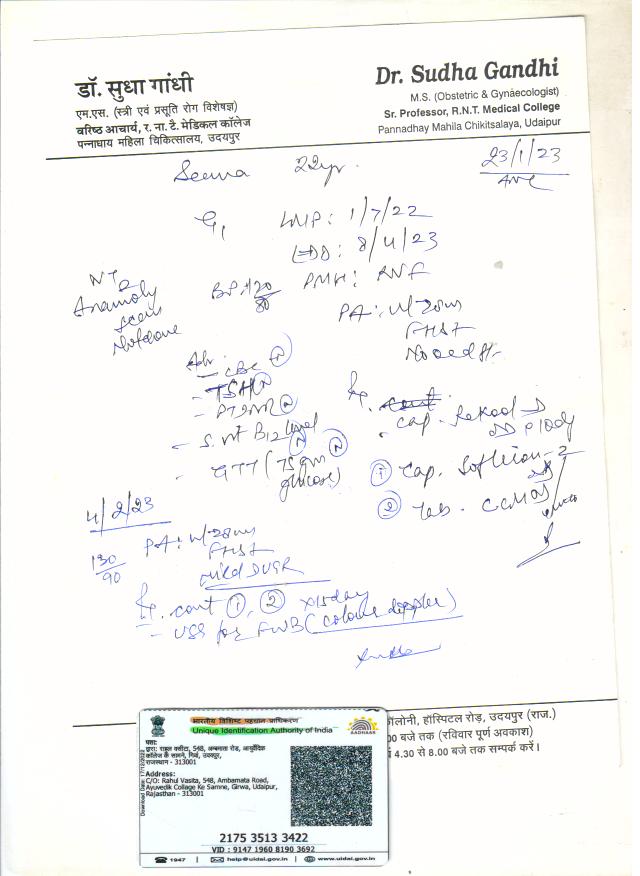 डॉ. सुधा गांधी
एम.एस. (स्त्री एवं प्रसूति रोग विशेषज्ञ)
वरिष्ठ आचार्य, र. ना. टै. मेडिकल कॉलेज
पन्नाधाय महिला चिकित्सालय, उदयपुर
Dr. Sudha Gandhi
M.S. (Obstetric & Gynaecologist)
Sr. Professor, R.N.T. Medical College
Pannadhay Mahila Chikitsalaya, Udaipur
23/1/23
ANC
Seema 22yr.
G1 LMP: 1/7/22
EDD: 8/4/23
NT
Anamoly
scan
Not done
BP 120/80
PMH: RNF
PA: Ut 28ws
FHS+
No oed
Adv.
- CBC N
- TSH N
- PT INR N
- S. Vit B12 level N
- GTT (75gm glucose) N
Rx. cont
Cap.
① Cap.
② Tab.
4/2/23
130/90
PA: Ut 28ws
FHS+
mild IUGR
Rx. cont ①, ② x 15 day
- USG for FWB (colour doppler)
भारतीय विशिष्ट पहचान प्राधिकरण
Unique Identification Authority of India
AADHAAR
पता:
द्वारा: राहुल वसीटा, 548, अम्बामाता रोड, आयुर्वेदिक
कॉलेज के सामने, गिर्वा, उदयपुर,
राजस्थान - 313001
Address:
C/O: Rahul Vasita, 548, Ambamata Road,
Ayuvedik Collage Ke Samne, Girwa, Udaipur,
Rajasthan - 313001
2175 3513 3422
VID : 9147 1960 8190 3692
1947 | help@uidai.gov.in | www.uidai.gov.in
ॉलोनी, हॉस्पिटल रोड़, उदयपुर (राज.)
00 बजे तक (रविवार पूर्ण अवकाश)
4.30 से 8.00 बजे तक सम्पर्क करें।